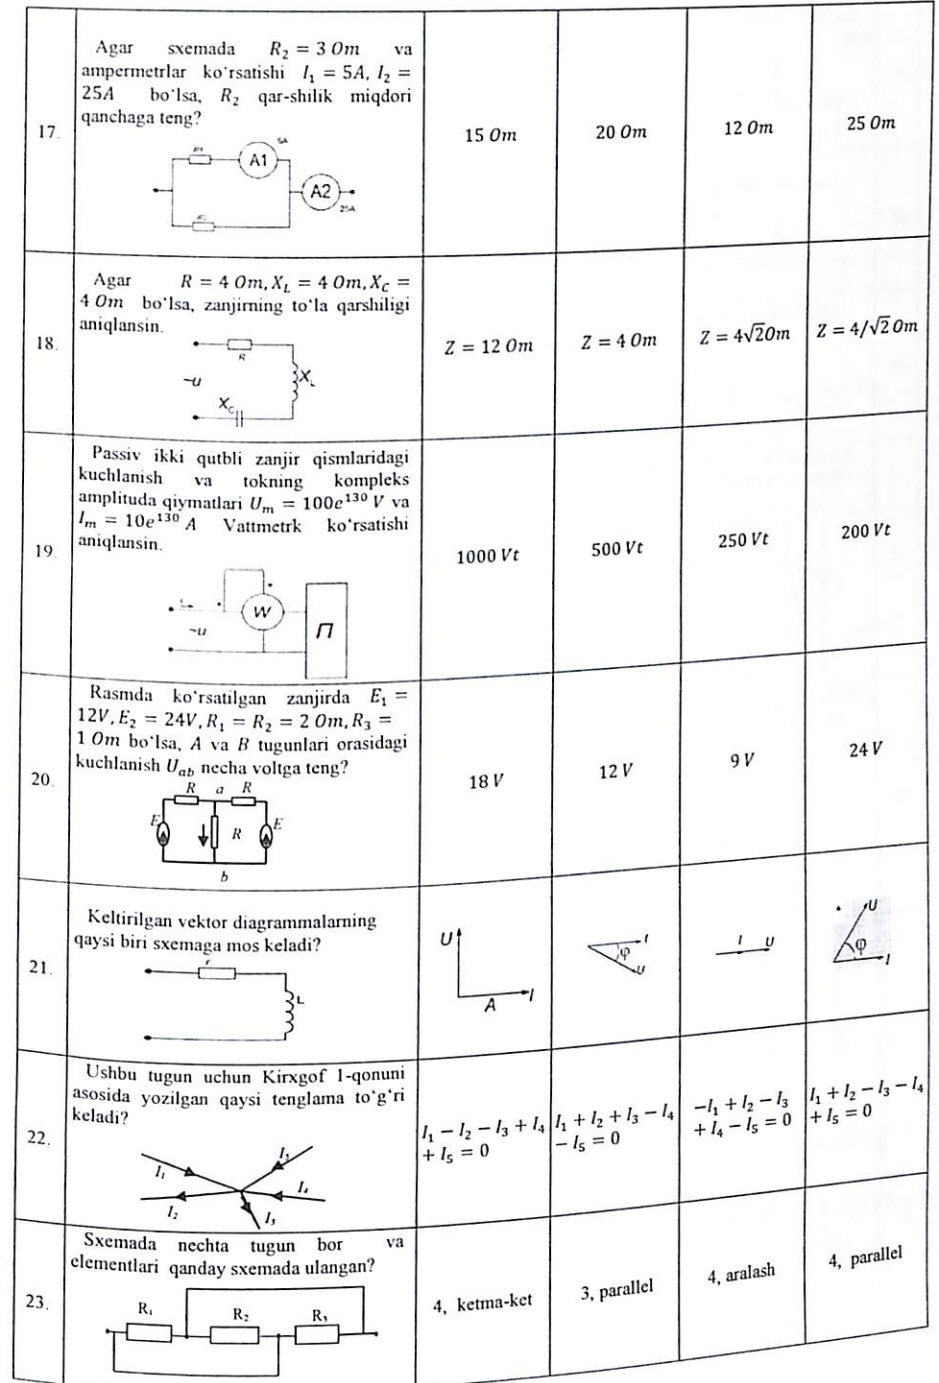 17.
Agar sxemada R₂ = 3 Om va
ampermetrlar ko'rsatishi I₁ = 5A, I₂ =
25A bo'lsa, R₂ qar-shilik miqdori
qanchaga teng?
A1
5A
A2
25A
15 Om
20 Om
12 Om
25 Om
18.
Agar R = 4 Om, X_L = 4 Om, X_C =
4 Om bo'lsa, zanjirning to'la qarshiligi
aniqlansin.
R
~u
X_L
X_C
Z = 12 Om
Z = 4 Om
Z = 4√2Om
Z = 4/√2 Om
19.
Passiv ikki qutbli zanjir qismlaridagi
kuchlanish va tokning kompleks
amplituda qiymatlari U_m = 100e¹³⁰ V va
I_m = 10e¹³⁰ A Vattmetrk ko'rsatishi
aniqlansin.
W
~u
П
1000 Vt
500 Vt
250 Vt
200 Vt
20.
Rasmda ko'rsatilgan zanjirda E₁ =
12V, E₂ = 24V, R₁ = R₂ = 2 Om, R₃ =
1 Om bo'lsa, A va B tugunlari orasidagi
kuchlanish U_ab necha voltga teng?
R a R
E R E
b
18 V
12 V
9 V
24 V
21.
Keltirilgan vektor diagrammalarning
qaysi biri sxemaga mos keladi?
r
L
U
A I
I
φ
U
I U
U
φ
I
22.
Ushbu tugun uchun Kirxgof 1-qonuni
asosida yozilgan qaysi tenglama to'g'ri
keladi?
I₁
I₅
I₂
I₄
I₃
I₁ − I₂ − I₃ + I₄
+ I₅ = 0
I₁ + I₂ + I₃ − I₄
− I₅ = 0
−I₁ + I₂ − I₃
+ I₄ − I₅ = 0
I₁ + I₂ − I₃ − I₄
+ I₅ = 0
23.
Sxemada nechta tugun bor va
elementlari qanday sxemada ulangan?
R₁
R₂
R₃
4, ketma-ket
3, parallel
4, aralash
4, parallel